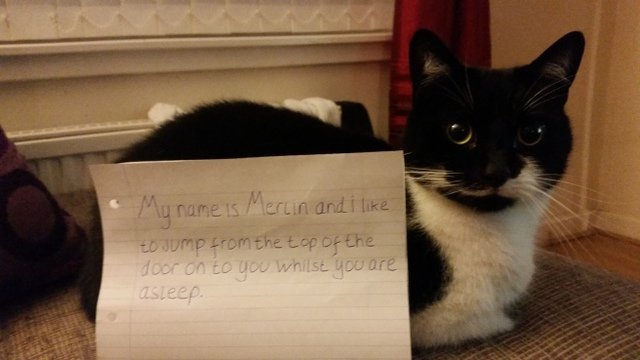 My name is Merlin and i like
to jump from the top of the
door on to you whilst you are
asleep.